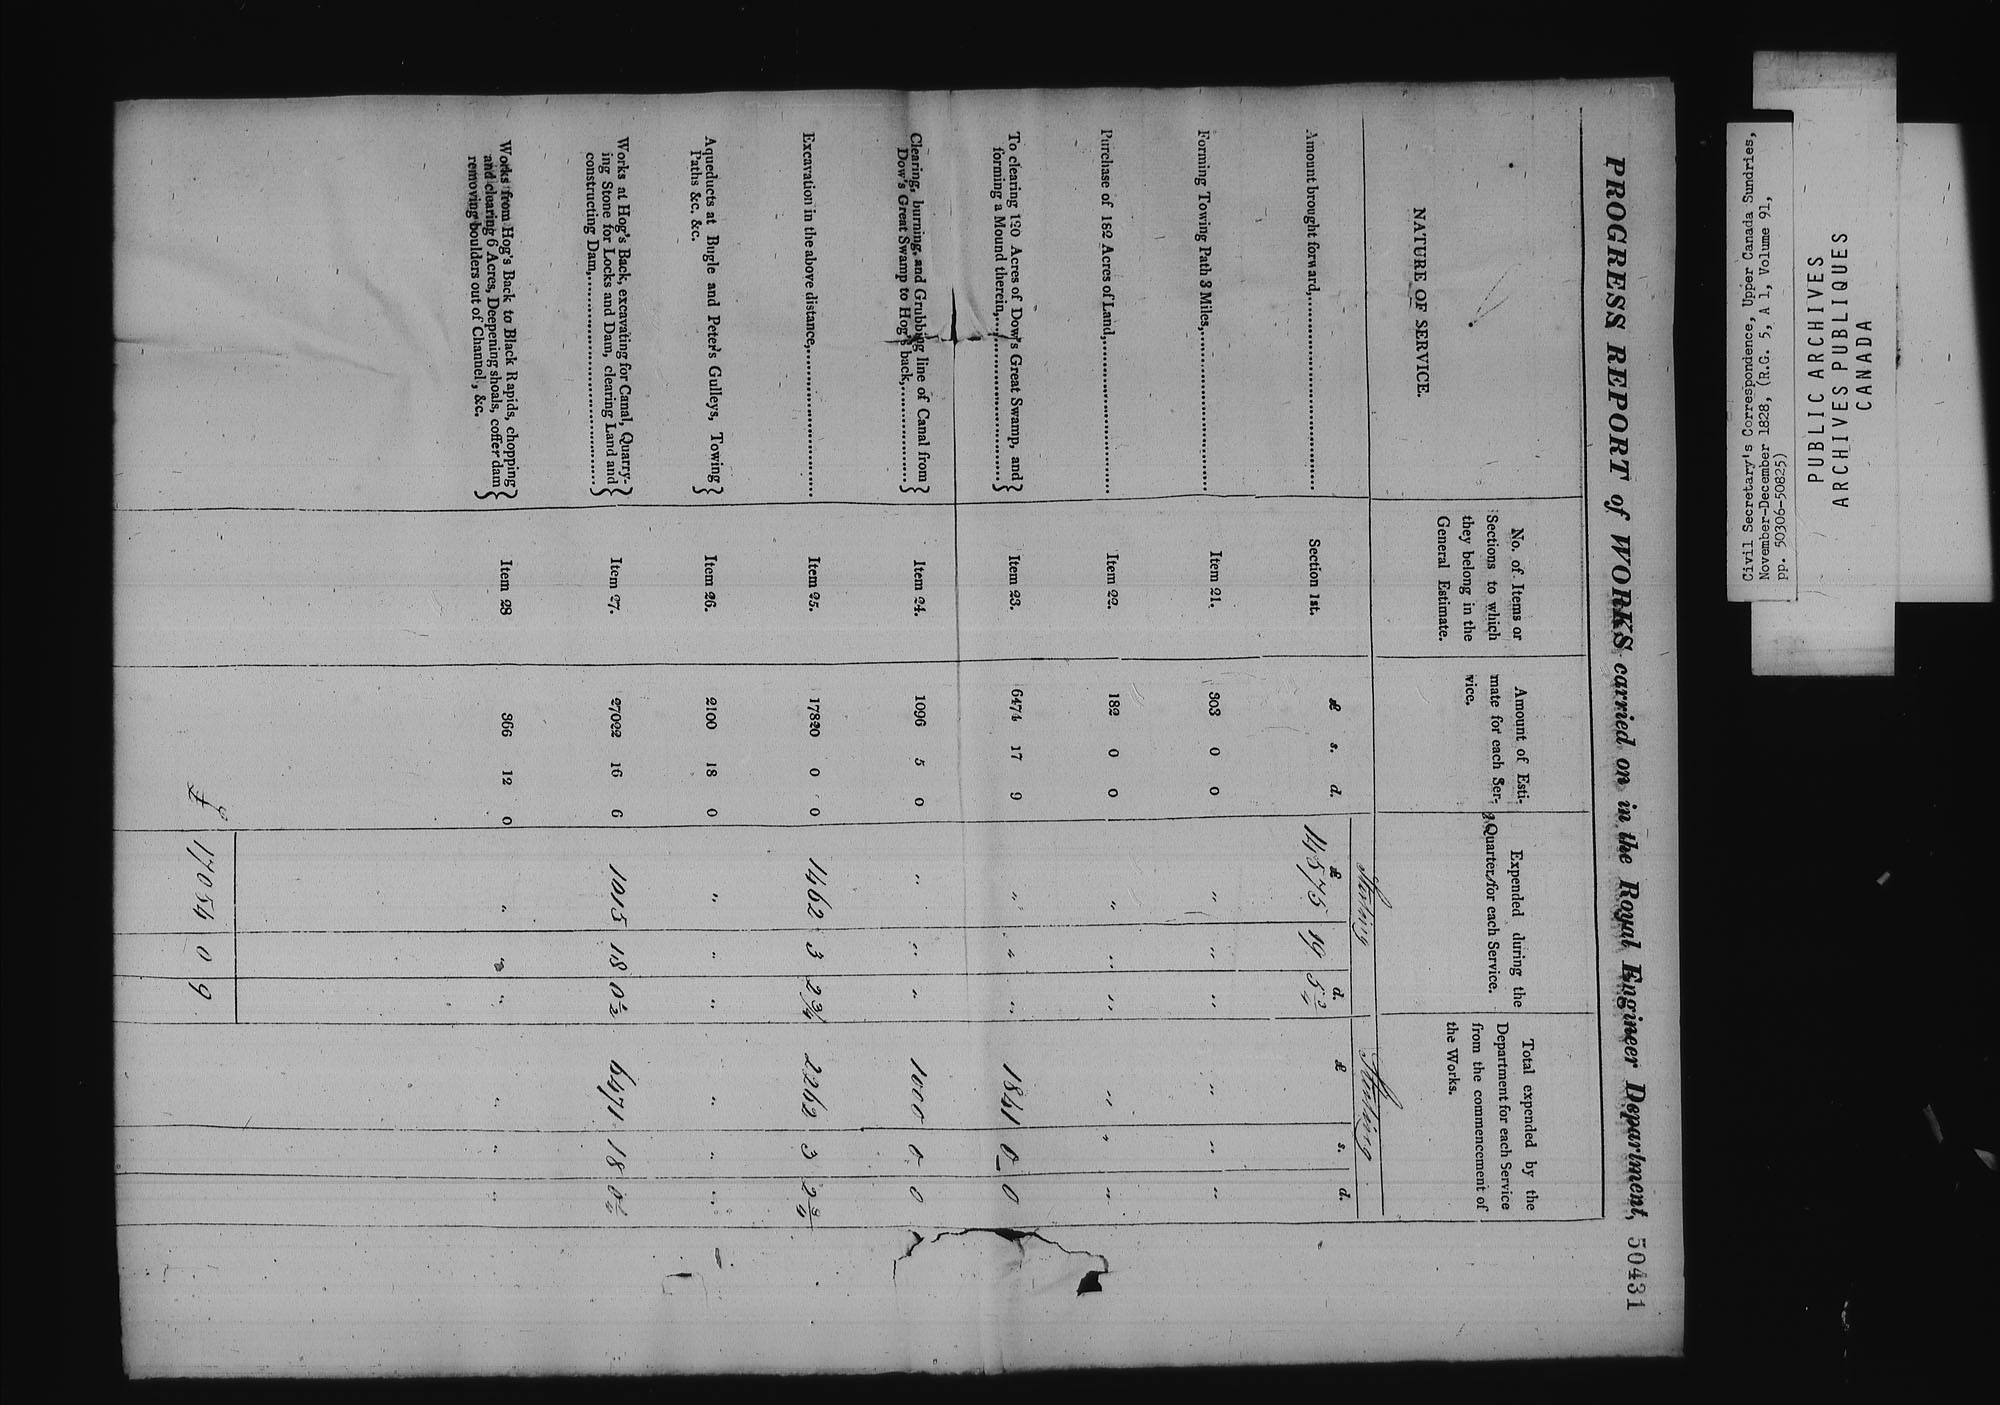 PROGRESS REPORT of WORKS carried on in the Royal Engineer Department,
50431
NATURE OF SERVICE.
No. of Items or
Sections to which
they belong in the
General Estimate.
Amount of Esti-
mate for each Ser-
vice.
Expended during the
Quarter, for each Service.
Total expended by the
Department for each Service
from the commencement of
the Works.
Sterling Sterling
£ s. d. £ d. £ s. d.
Amount brought forward, Section 1st. 14575 19 5 3/4
Forming Towing Path 3 Miles, Item 21. 303 0 0 " " " " " "
Purchase of 182 Acres of Land, Item 22. 182 0 0 " " " " " "
To clearing 120 Acres of Dow's Great Swamp, and
forming a Mound therein, } Item 23. 6474 17 9 " " " 1841 0 0
Clearing, burning, and Grubbing line of Canal from
Dow's Great Swamp to Hog's back, } Item 24. 1096 5 0 " " " 1000 0 0
Excavation in the above distance, Item 25. 17820 0 0 1462 3 2 3/4 2262 3 2 3/4
Aqueducts at Bugle and Peter's Gulleys, Towing
Paths &c. &c. } Item 26. 2100 18 0 " " " " " "
Works at Hog's Back, excavating for Canal, Quarry-
ing Stone for Locks and Dam, clearing Land and
constructing Dam, } Item 27. 27022 16 6 1015 18 0 1/2 6471 18 0 1/2
Works from Hog's Back to Black Rapids, chopping
and clearing 6 Acres, Deepening shoals, coffer dam
removing boulders out of Channel, &c. } Item 28 366 12 0 " " " " " "
£ 17054 0 9
Civil Secretary's Correspondence, Upper Canada Sundries,
November-December 1828, (R.G. 5, A 1, Volume 91,
pp. 50306-50825)
PUBLIC ARCHIVES
ARCHIVES PUBLIQUES
CANADA